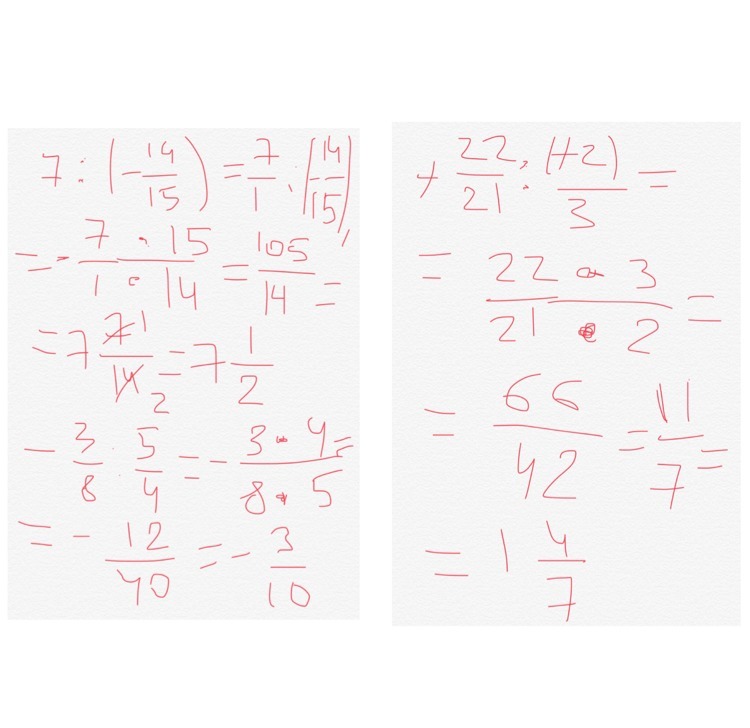 7 : (-14/15) = 7/1 : (-14/15)
= - 7 · 15 / 1 · 14 = 105/14 =
= 7 7 1/14 2 = 7 1/2
- 3/8 : 5/4 = - 3 · 4 / 8 · 5 =
= - 12/40 = - 3/10
+ 22/21 : (+2)/3 =
= 22 · 3 / 21 · 2 =
= 66/42 = 11/7 =
= 1 4/7